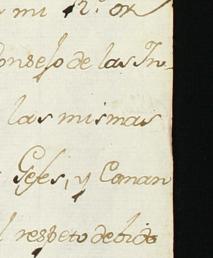 mi 12.º de
Consejo de las In-
las mismas
Gefes, y Coman
l respeto debido